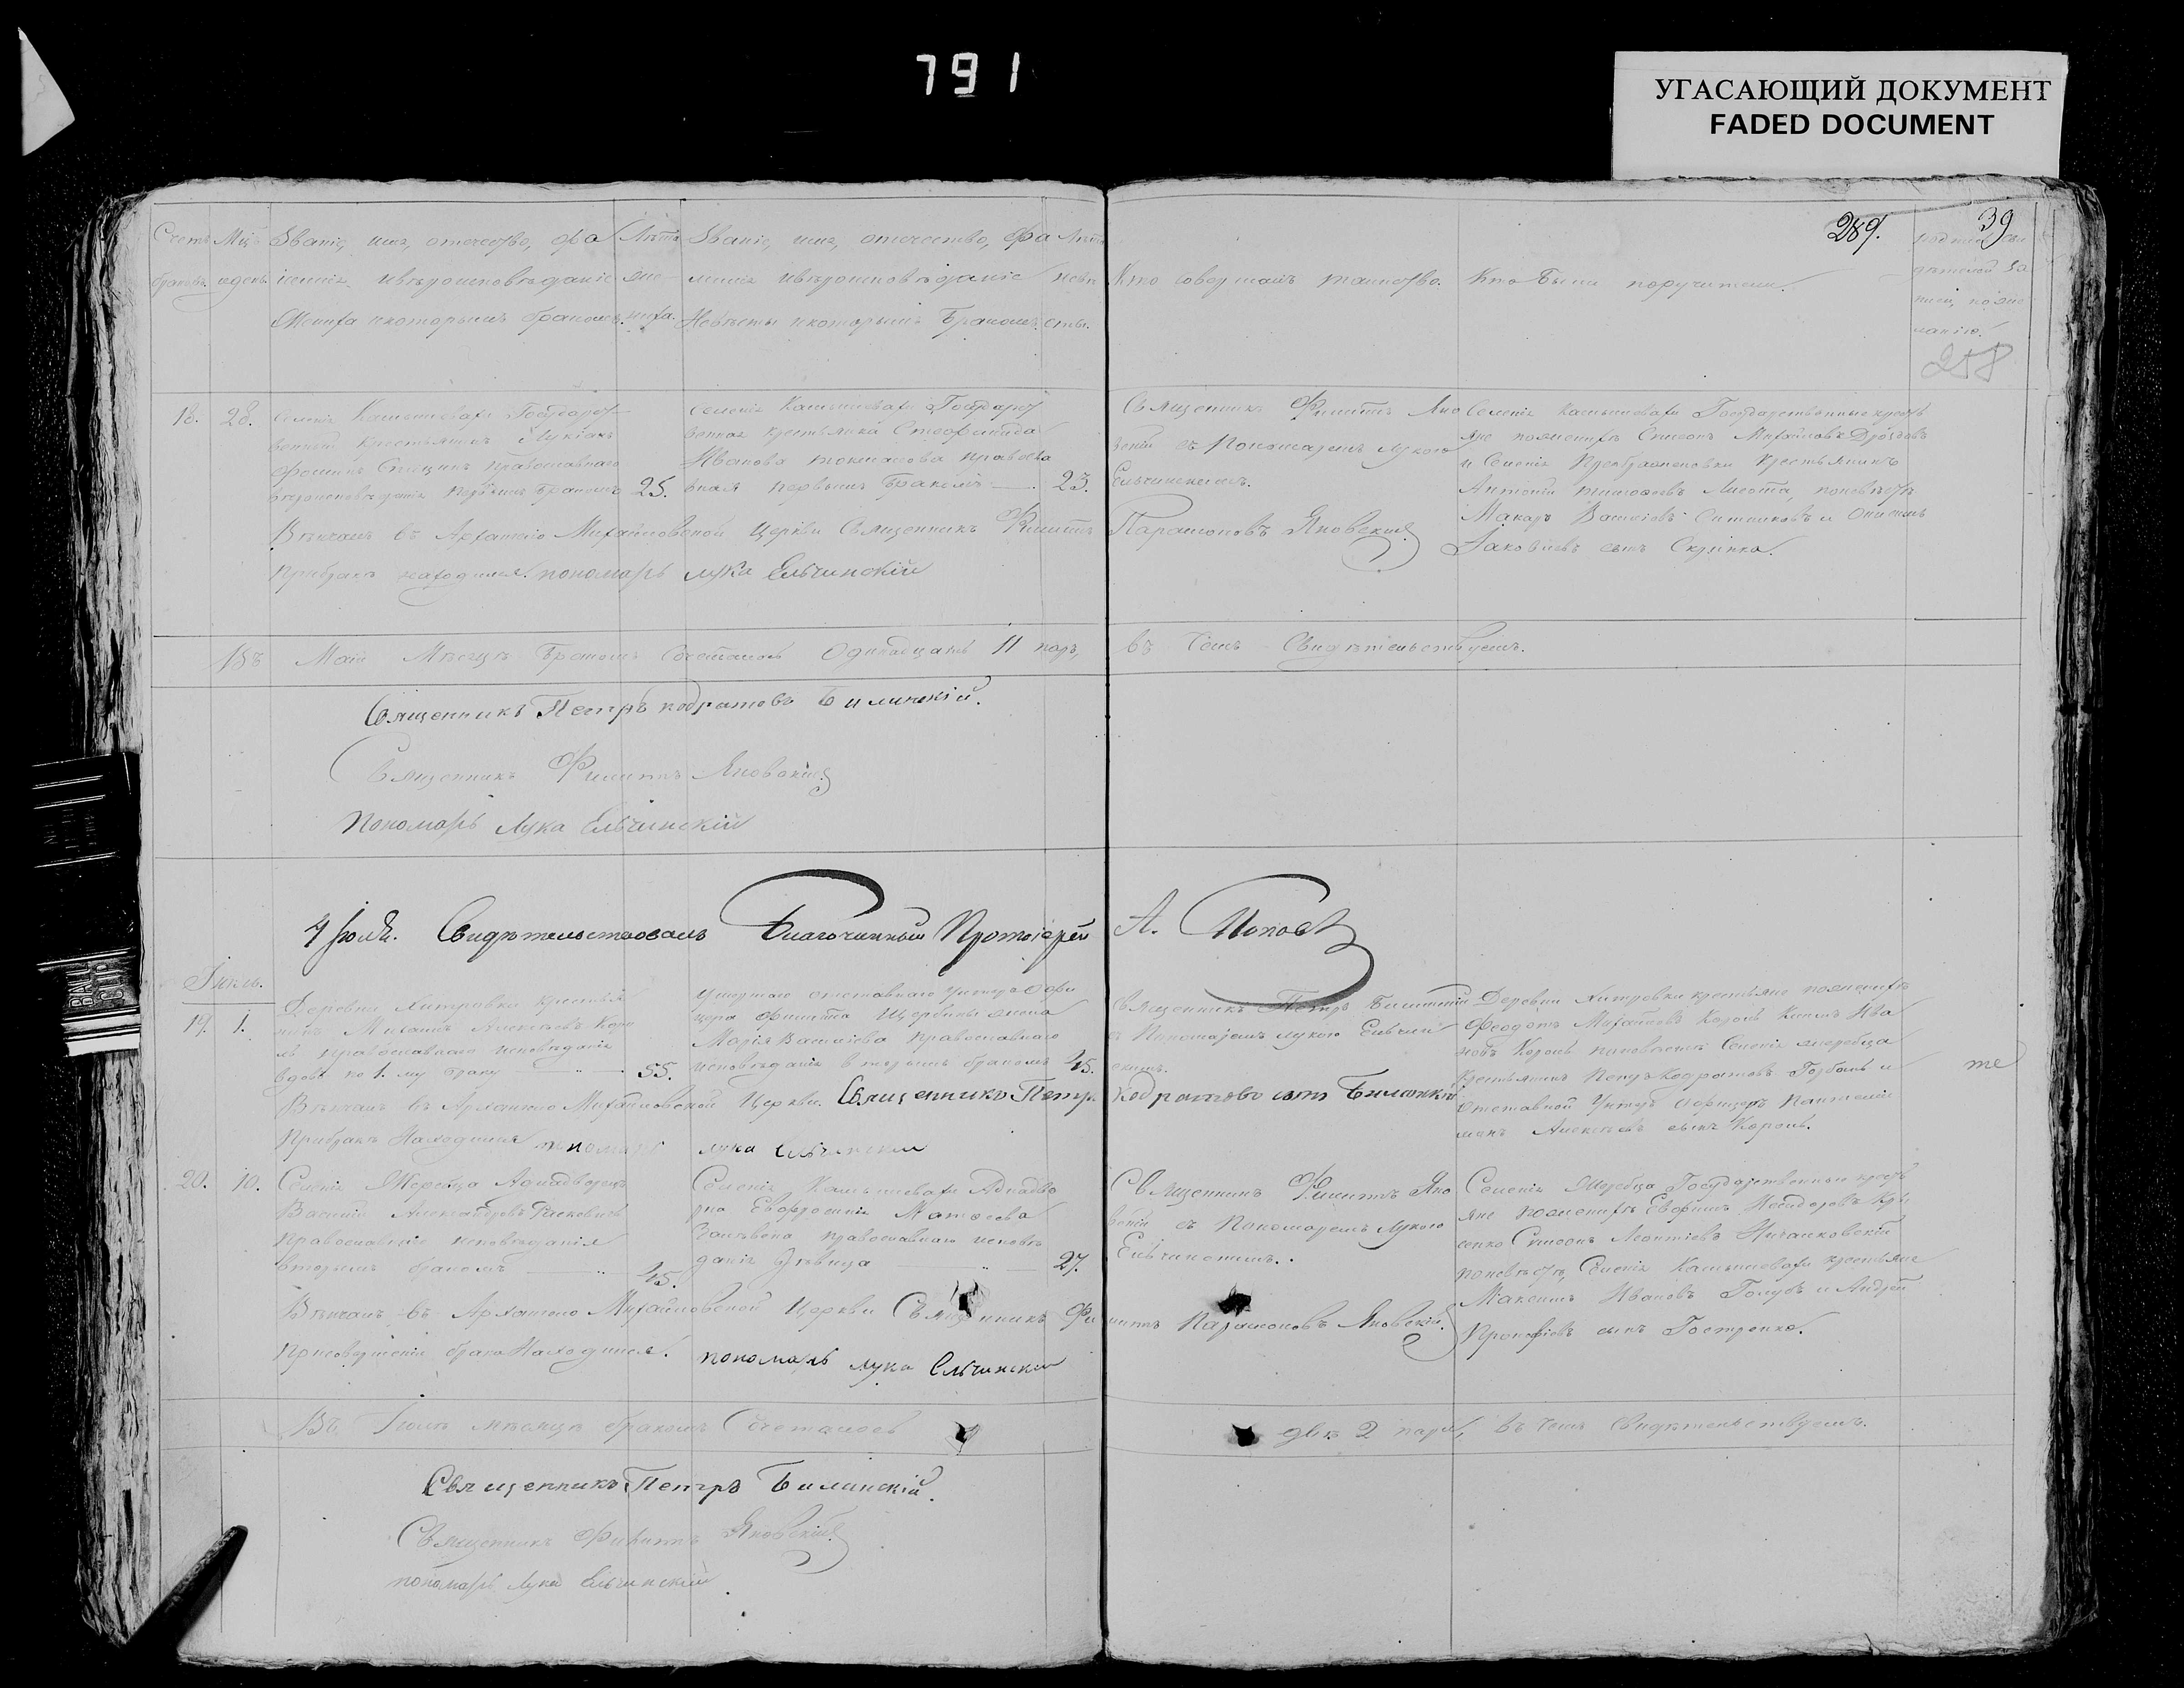 791
УГАСАЮЩИЙ ДОКУМЕНТ
FADED DOCUMENT
289.
39
258
Счетъ браковъ.
Мцъ и день
Званіе, имя, отечество, фа
миліе и вѣроисповѣданіе
Жениха и которымъ бракомъ.
Лѣта
же
ниха.
Званіе, имя, отечество, фа
миліе и вѣроисповѣданіе
Невѣсты и которымъ бракомъ.
Лѣта
невѣ
сты.
Кто совершалъ таинство.
Кто были поручители.
18.
28.
Селенія Камышевахи Государст
венный крестьянинъ Лукіанъ
Спицинъ православнаго
вѣроисповѣданія первымъ бракомъ
25.
Селенія Камышевахи Государст
венная крестьянка Стефанида
Иванова православ
ная первымъ бракомъ
23.
Священникъ Филиппъ Яно
вскій съ Пономаремъ Лукою
Ельчинскимъ.
Селенія Камышевахи Государственные кресть
яне по женихѣ Симеонъ Михайловъ Дроздовъ
и Селенія Преображеновки крестьянинъ
Антоній Тимофеевъ по невѣстѣ
Макаръ Васильевъ Ситниковъ и Онисимъ
Іаковлевъ сынъ Скрипка.
Вѣнчалъ въ Архангело Михайловской Церкви Священникъ Филиппъ Парамоновъ Яновскій
При бракѣ находился пономарь Лука Ельчинскій
Въ Маѣ Мѣсяцѣ бракомъ сочеталось одинадцать 11 паръ, въ чемъ свидѣтельствуемъ.
Священникъ Петръ Кодратовъ Билинскій.
Священникъ Филиппъ Яновскій
Пономарь Лука Ельчинскій
Свидѣтельствовалъ Благочинный Протоіерей А. Поповъ
19.
1.
Деревни Хитровки крестья
нинъ Михаилъ Алексѣевъ Коро
ль православнаго исповѣданія
вдовъ по 1. му браку
55.
Умершаго отставнаго Унтеръ Офи
цера Филиппа Щербины жена
Марія Васильева православнаго
исповѣданія вторымъ бракомъ
45.
Священникъ Петръ Билинскій
съ Пономаремъ Лукою Ельчин
скимъ.
Деревни Хитровки крестьяне по женихѣ
Феодотъ Михайловъ Король Ива
новъ Король по невѣстѣ Селенія Жеребца
крестьянинъ Петръ Кодратовъ Горбань и
отставной Унтеръ Офицеръ
Алексѣевъ сынъ Король.
Вѣнчалъ въ Архангело Михайловской Церкви. Священникъ Петръ Кодратовъ сынъ Билинскій
При бракѣ находился пономарь Лука Ельчинскій
20.
10.
Селенія Жеребца Аднадворецъ
Василій Александровъ
Православнаго исповѣданія
вторымъ бракомъ
45.
Селенія Камышевахи Аднадво
рка Евфросинія Матфеева
православнаго исповѣ
данія дѣвица
27.
Священникъ Филиппъ Яно
вскій съ Пономаремъ Лукою
Ельчинскимъ.
Селенія Жеребца Государственные кресть
яне по женихѣ Евфимъ
Симеонъ Леонтіевъ
по невѣстѣ, Селенія Камышевахи крестьяне
Максимъ Ивановъ Голубъ и Андрей
Прокофіевъ сынъ Гостренко.
Вѣнчалъ въ Архангело Михайловской Церкви Священникъ Филиппъ Парамоновъ Яновскій.
При совершеніи брака Находился. пономарь Лука Ельчинскій
Въ мѣсяцѣ бракомъ Сочеталось двѣ 2 пары, въ чемъ свидѣтельствуемъ.
Священникъ Петръ Билинскій.
Священникъ Филиппъ Яновскій
пономарь Лука Ельчинскій